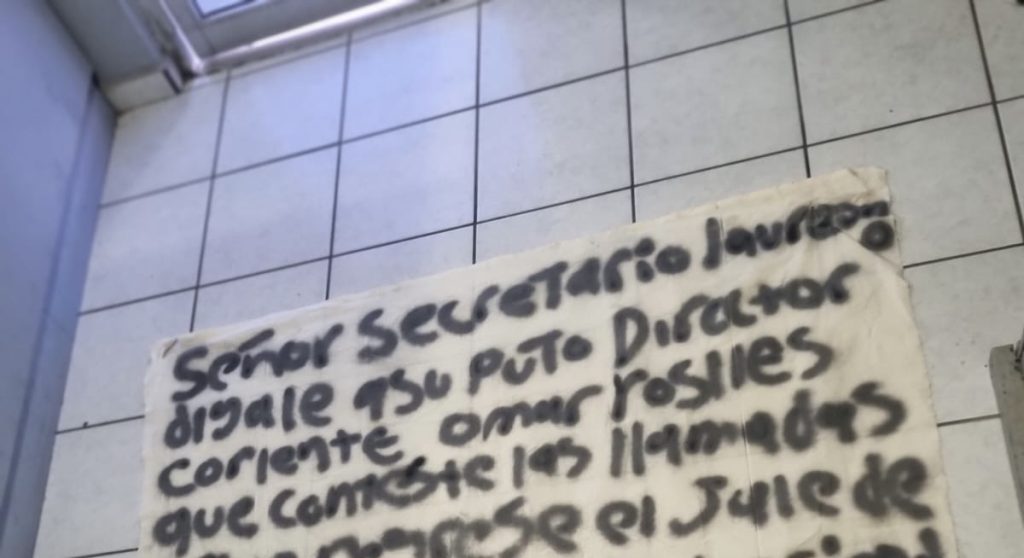 Señor Secretario laureano
digale asu puTo Diractor
corIente omar roslles
que conteste las llamadas
el Jale de